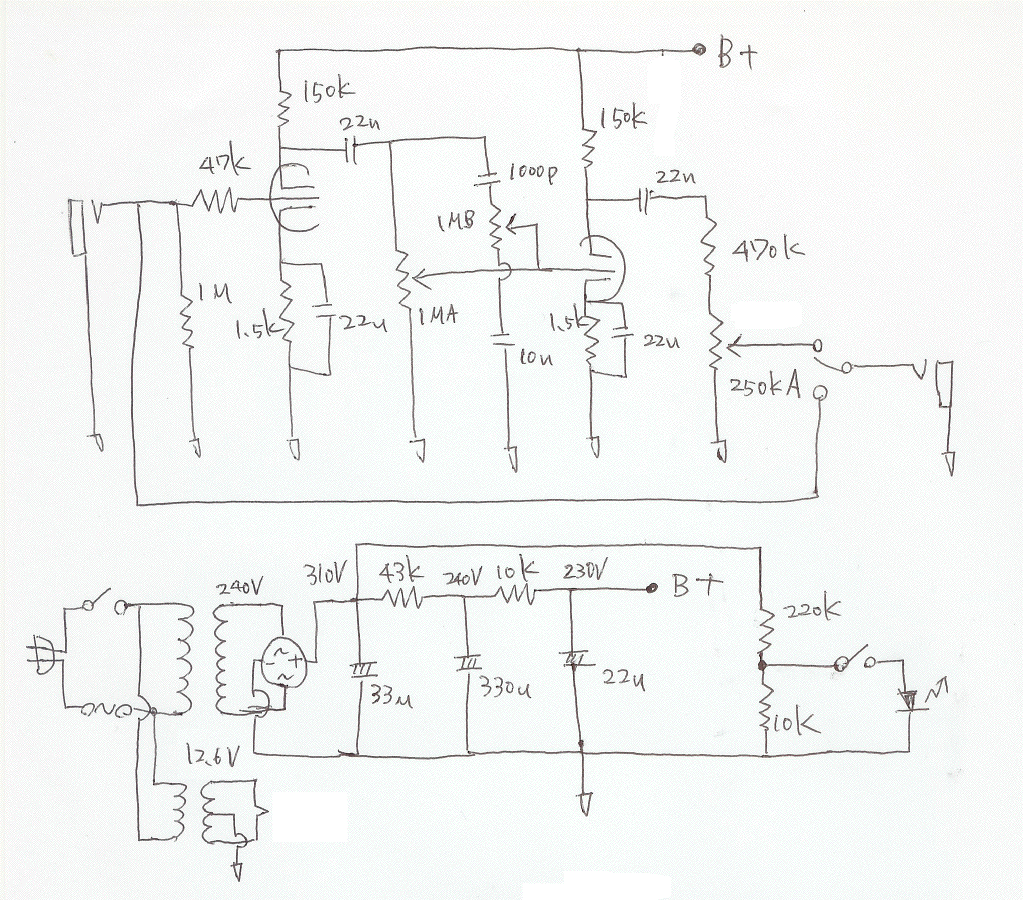 B+
150k
22u
150k
47k
1000p
22u
1MB
470k
1M
1.5k
22u
1MA
10n
1.5k
22u
250kA
240V
310V
43k
240V
10k
230V
B+
220k
33u
330u
22u
10k
12.6V